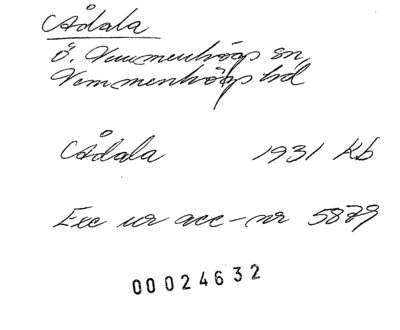 Ådala
Ö. Vemmenhögs sn
Vemmenhögs hd
Ådala 1931 Kb
Exc ur acc-nr 5879
00024632